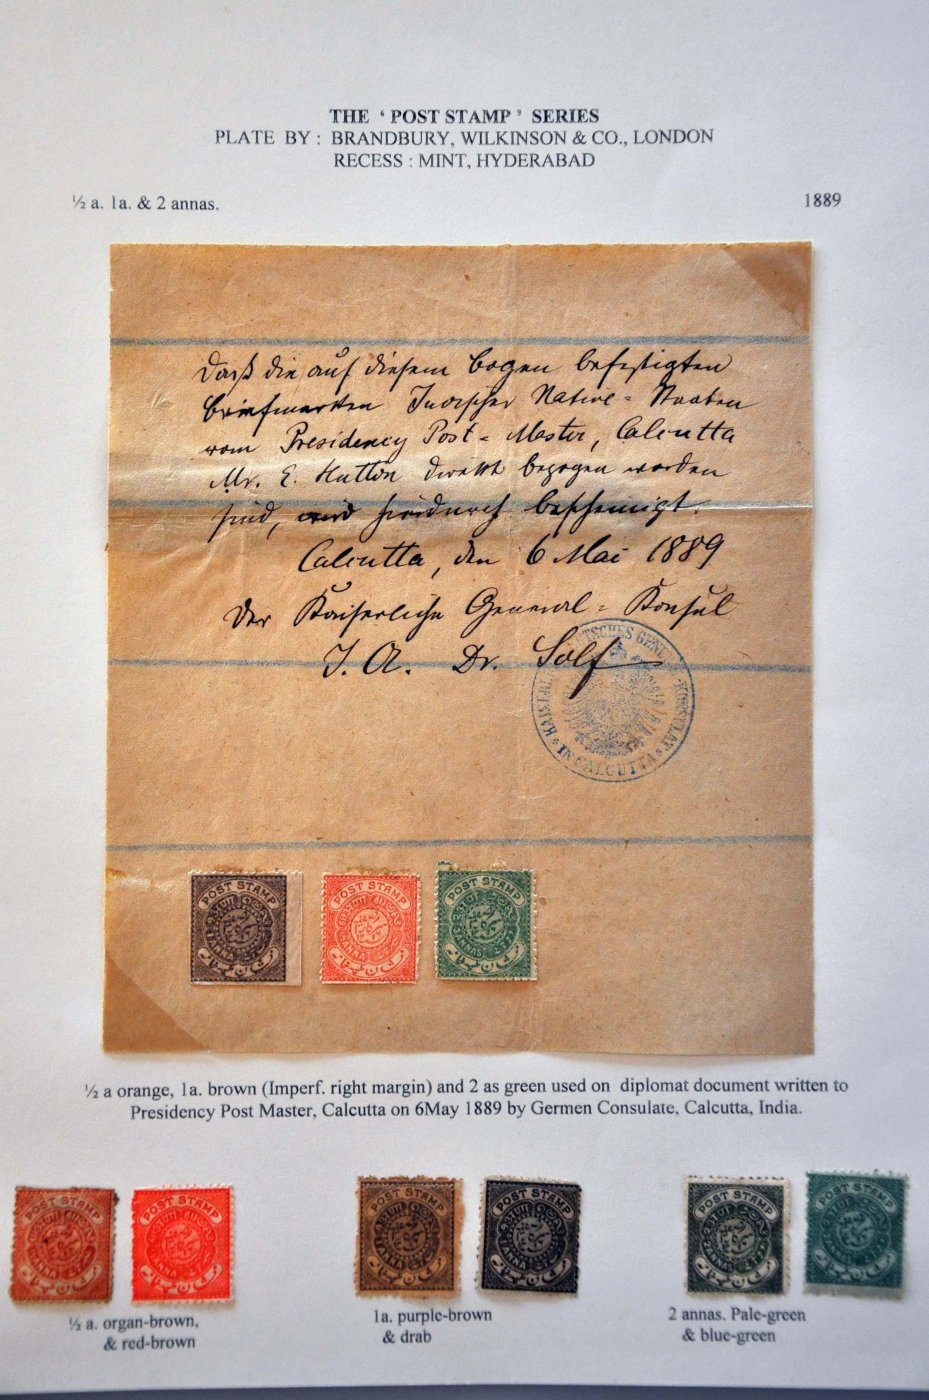 THE ‘ POST STAMP ’ SERIES
PLATE BY : BRANDBURY, WILKINSON & CO., LONDON
RECESS : MINT, HYDERABAD
½ a. 1a. & 2 annas.
1889
Daß die auf diesem Bogen befestigten
Briefmarken Indischer Native = Staaten
vom Presidency Post = Master, Calcutta
Mr. E. Hutton direkt bezogen worden
sind, wird hierdurch bescheinigt.
Calcutta, den 6 Mai 1889
Der Kaiserliche General = Konsul
I. A. Dr. Solf
KAISERL. DEUTSCHES GENERAL-KONSULAT
* IN CALCUTTA *
POST STAMP
POST STAMP
POST STAMP
ANNA
ANNA
ANNAS
½ a orange, 1a. brown (Imperf. right margin) and 2 as green used on diplomat document written to
Presidency Post Master, Calcutta on 6May 1889 by Germen Consulate, Calcutta, India.
POST STAMP
POST STAMP
POST STAMP
POST STAMP
POST STAMP
POST STAMP
½ a. organ-brown,
& red-brown
1a. purple-brown
& drab
2 annas. Pale-green
& blue-green